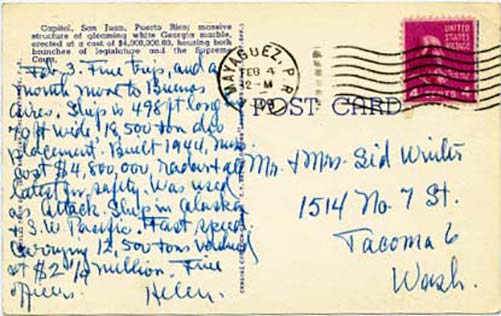 Capitol, San Juan, Puerto Rico; massive
structure of gleaming white Georgia marble,
erected at a cost of $4,000,000.00, housing both
branches of legislature and the Supreme
Court.
Feb. 3. Fine trip, and a
month more to Buenos
Aires. Ship is 498 ft long
70 ft wide 18,500 ton dis-
placement. Built 1944,
cost $4,800,000, radar & all
latest for safety. Was used
as Attack Ship in Alaska
& S.W. Pacific. Fast speed.
Carrying 12,500 tons valued
at $2 1/2 million. Fine
officers. Helen.
MAYAGUEZ, P.R.
FEB 4
12-M
UNITED
STATES
POSTAGE
4 CENTS 4
POST CARD
Mr. & Mrs. Sid Winter
1514 No. 7 St.
Tacoma 6
Wash.